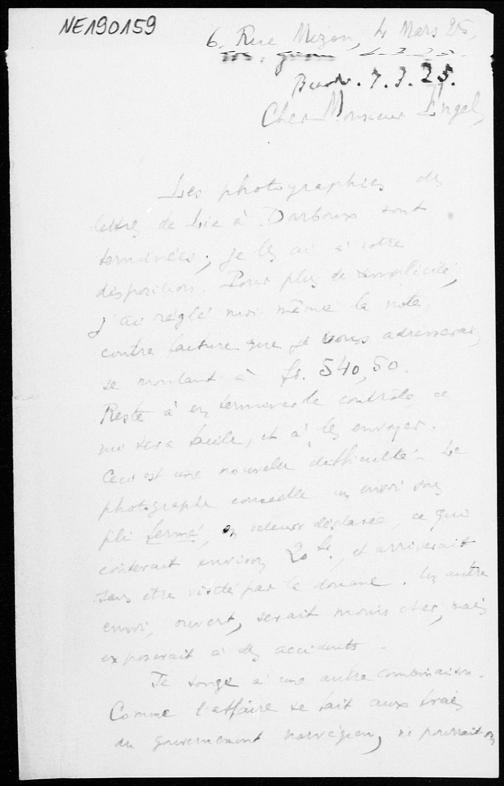 NE190159
6, Rue Mizon, 4 Mars 25,
7.3.25.
Cher Monsieur Engel,
Les photographies des
lettres de Lie à Darboux sont
terminées; je les ai à votre
disposition. Pour plus de simplicité,
j'ai réglé moi même la note,
contre facture que je vous adresserai,
se montant à fr. 540,50.
Reste à en terminer le contrôle, ce
me sera facile, et à les envoyer.
Ceci est une nouvelle difficulté. Le
photographe conseille un envoi sous
pli fermé, en valeur déclarée, ce qui
couterait environ 20 fr, et arriverait
sans etre visité par la douane. Un autre
envoi, ouvert, serait moins cher, mais
exposerait à des accidents.
Je songe à une autre combinaison.
Comme l'affaire se fait aux frais
du gouvernement norvégien, ne pourrait-on